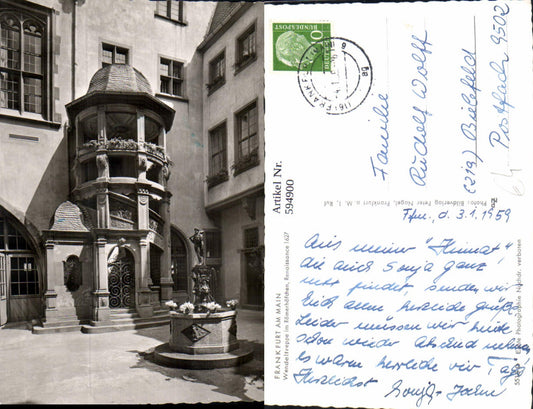 DEUTSCHE
BUNDESPOST
10
(16) FRANKFURT
Familie
Rudolf Wolff
(219) Bielefeld
Postfach 9502
Artikel Nr.
594900
FRANKFURT AM MAIN
Wendeltreppe im Römerhöfchen, Renaissance 1627
Photo: Bildverlag Peter Nagel, Frankfurt a. M. 1, Ruf
Ffm., d. 3.1.1959
Aus meiner "Heimat"
die auch Sonja ganz
nett findet, senden wir
Euch allen herzliche Grüße.
Leider müssen wir heute
schon wieder Abschied nehmen,
es waren herrliche vier Tage
Herzlichst
Echte Photographie Nachdr. verboten